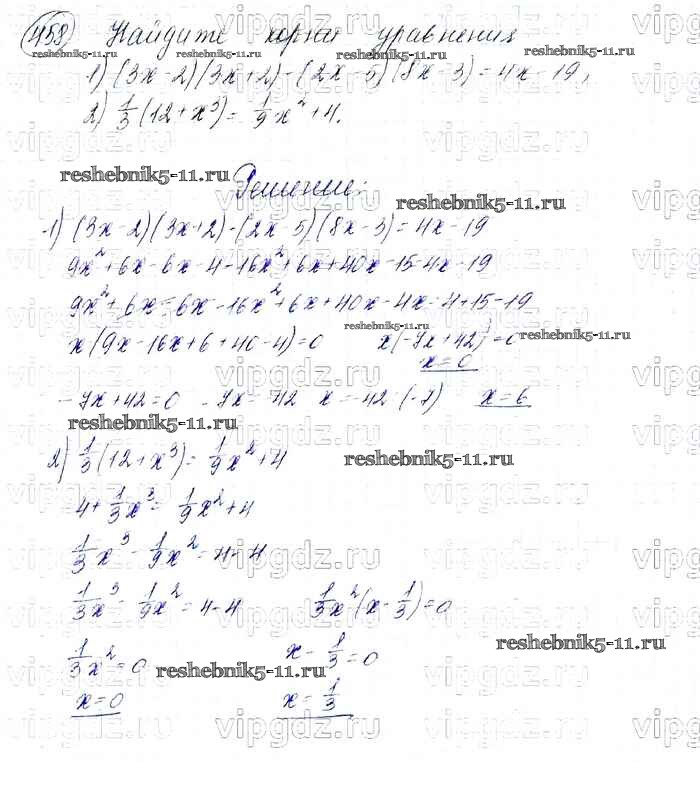 458 Найдите корни уравнения
1) (3x-2)(3x+2)-(2x-5)(8x-3)=4x-19,
2) 1/3(12+x³)=1/9x²+4.
Решение:
1) (3x-2)(3x+2)-(2x-5)(8x-3)=4x-19
9x²+6x-6x-4-16x²+6x+40x-15-4x-19
9x²+6x=6x-16x²+6x+40x-4x=4+15-19
x(9x-16x+6+40-4)=0 x(-7x+42)=0
x=0
-7x+42=0 -7x=-42 x=-42:(-7) x=6
2) 1/3(12+x³)=1/9x²+4
4+1/3x³=1/9x²+4
1/3x³-1/9x²=4-4
1/3x³-1/9x²=4-4 1/3x²(x-1/3)=0
1/3x²=0 x-1/3=0
x=0 x=1/3
reshebnik5-11.ru
vipgdz.ru